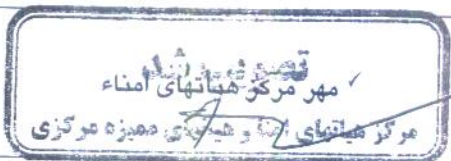 تصویب شد
✓ مهر مرکز هیاتهای امناء
مرکز هیاتهای امنا و هیاتهای ممیزه مرکزی